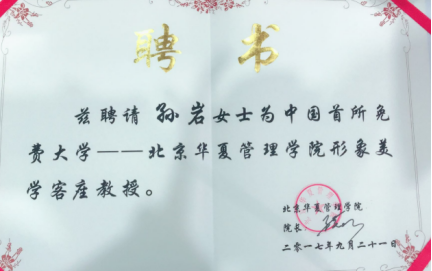 聘书
兹聘请 孙岩女士为中国首所免
费大学——北京华夏管理学院形象美
学客座教授。
北京华夏管理学院
院长
二〇一七年九月二十一日